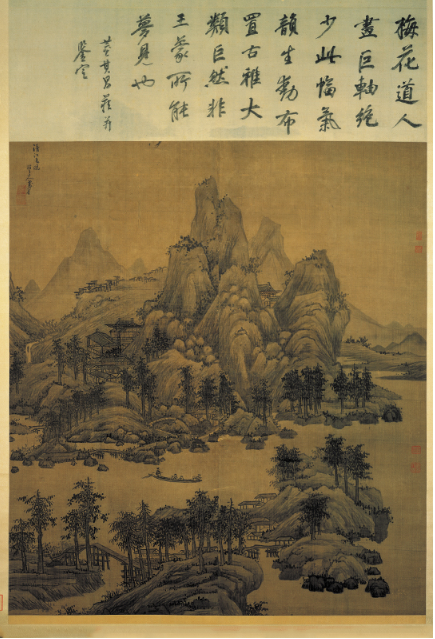 梅花道人
畫巨軸絶
少此幅氣
韻生動布
置古雅大
類巨然非
王蒙所能
夢見也
董其昌觀并
鑒定